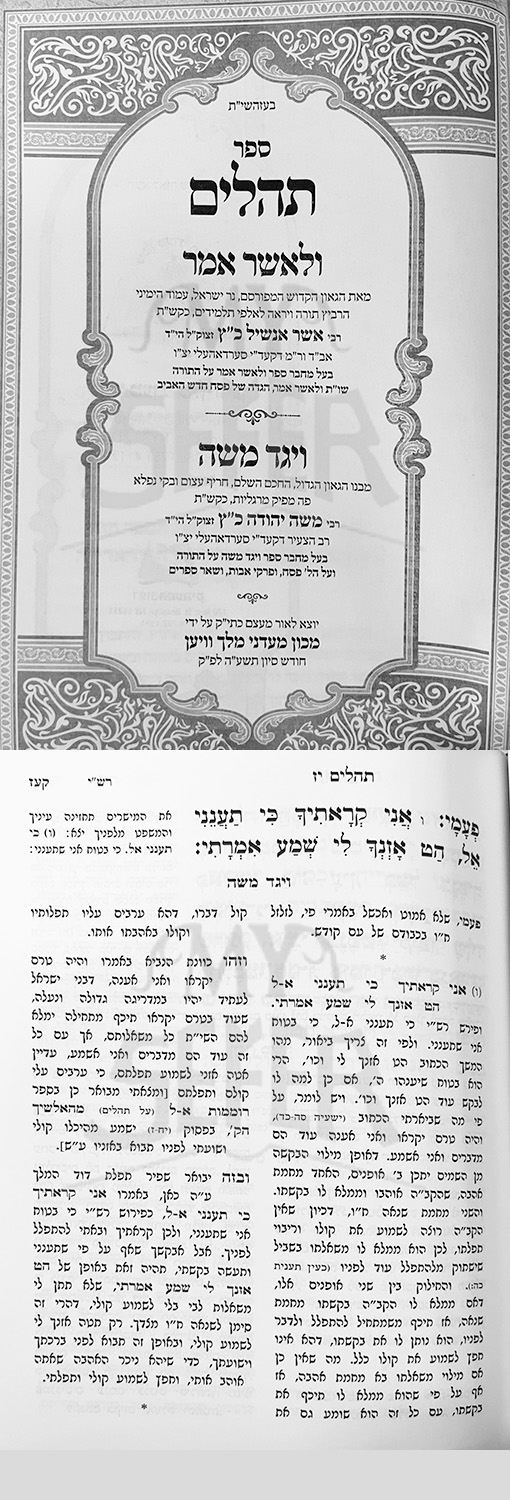 בעזהשי"ת
ספר
תהלים
ולאשר אמר
מאת הגאון הקדוש המפורסם, נר ישראל, עמוד הימיני
הרביץ תורה ויראה לאלפי תלמידים, כקש"ת
רבי אשר אנשיל כ"ץ זצוק"ל הי"ד
אב"ד ור"מ דקעד"י סערדאהעלי יצ"ו
בעל מחבר ספר ולאשר אמר על התורה
שו"ת ולאשר אמר, הגדה של פסח חדש האביב
ויגד משה
מבנו הגאון הגדול, החכם השלם, חריף עצום ובקי נפלא
פה מפיק מרגליות, כקש"ת
רבי משה יהודה כ"ץ זצוק"ל הי"ד
רב הצעיר דקעד"י סערדאהעלי יצ"ו
בעל מחבר ספר ויגד משה על התורה
ועל הל' פסח, ופרקי אבות, ושאר ספרים
יוצא לאור מעצם כתי"ק על ידי
מכון מעדני מלך וויען
חודש סיון תשע"ה לפ"ק
תהלים יז
רש"י
קעז
פְעָמָי: ו אֲנִי קְרָאתִיךָ כִּי תַעֲנֵנִי
אֵל, הַט אָזְנְךָ לִי שְׁמַע אִמְרָתִי:
את המישרים תחזינה עיניך
והמשפט מלפניך יצא: (ו) כי
תענני אל. כי בטוח אני שתענני:
ויגד משה
פעמי, שלא אמוט ואכשל באמרי פי, לזלזל
ח"ו בכבודם של עם קודש.
*
(ו) אני קראתיך כי תענני א-ל
הט אזנך לי שמע אמרתי.
ופירש רש"י כי תענני א-ל, כי בטוח
אני שתענני. ולפי זה צריך ביאור, מהו
המשך הכתוב הט אזנך לי וכו', הרי
הוא בטוח שיענהו ה', אם כן למה לו
לבקש עוד הט אזנך וכו'. ויש לומר, על
פי מה שביארתי הכתוב (ישעיה סה-כד),
והיה טרם יקראו ואני אענה עוד הם
מדברים ואני אשמע. דאופן מילוי הבקשה
מן השמים יתכן ב' אופנים, האחד מחמת
אהבה, שהקב"ה אוהבו וממלא לו בקשתו.
והשני מחמת שנאה ח"ו, דכיון שאין
הקב"ה רוצה לשמוע את קולו וריבוי
תפלתו, לכן הוא ממלא לו משאלתו בשביל
שישתוק מלהתפלל עוד לפניו (כעין תענית
כה:). והחילוק בין שני אופנים אלו,
דאם ממלא לו הקב"ה בקשתו מחמת
שנאה, אז תיכף משמתחיל להתפלל ולדבר
לפניו, הוא נותן לו את בקשתו, דהא אינו
חפץ לשמוע את קולו כלל. מה שאין כן
אם מילוי משאלתו בא מחמת אהבה, אז
אף על פי שהוא ממלא לו תיכף את
בקשתו, עם כל זה הוא שומע גם את
קול דברו, דהא ערבים עליו תפלותיו
וקולו באהבתו אותו.
וזהו כוונת הנביא באמרו והיה טרם
יקראו ואני אענה, דבני ישראל
לעתיד יהיו במדריגה גדולה ונעלה,
שעוד בטרם יקראו תיכף מתחילה ימלא
להם השי"ת כל משאלותם, אך עם כל
זה עוד הם מדברים ואני אשמע, עדיין
אטה אזני לשמוע תפלתם, כי ערבים עלי
קולם ותפלתם [ומצאתי מבואר כן בספר
רוממות א-ל (על תהלים) מהאלשיך
הק', בפסוק (יח-ז) ישמע מהיכלו קולי
ושועתי לפניו תבוא באזניו ע"ש].
ובזה יבואר שפיר תפלת דוד המלך
ע"ה כאן, באמרו אני קראתיך
כי תענני א-ל, כפירוש רש"י כי בטוח
אני שתענני, ולכן קראתיך ובאתי להתפלל
לפניך. אבל אבקשך שאף על פי שתענני
ותעשה בקשתי, תהיה זאת באופן של הט
אזנך לי שמע אמרתי, שלא תתן לי
משאלות לבי בלי לשמוע קולי, דהרי זה
סימן לשנאה ח"ו מצדך. רק תטה אזנך לי
לשמוע קולי, ובאופן זה תבוא לפני ברכתך
וישועתך, כדי שיהא ניכר האהבה שאתה
אוהב אותי, וחפץ לשמוע קולי ותפלתי.
*
MY
SEFER